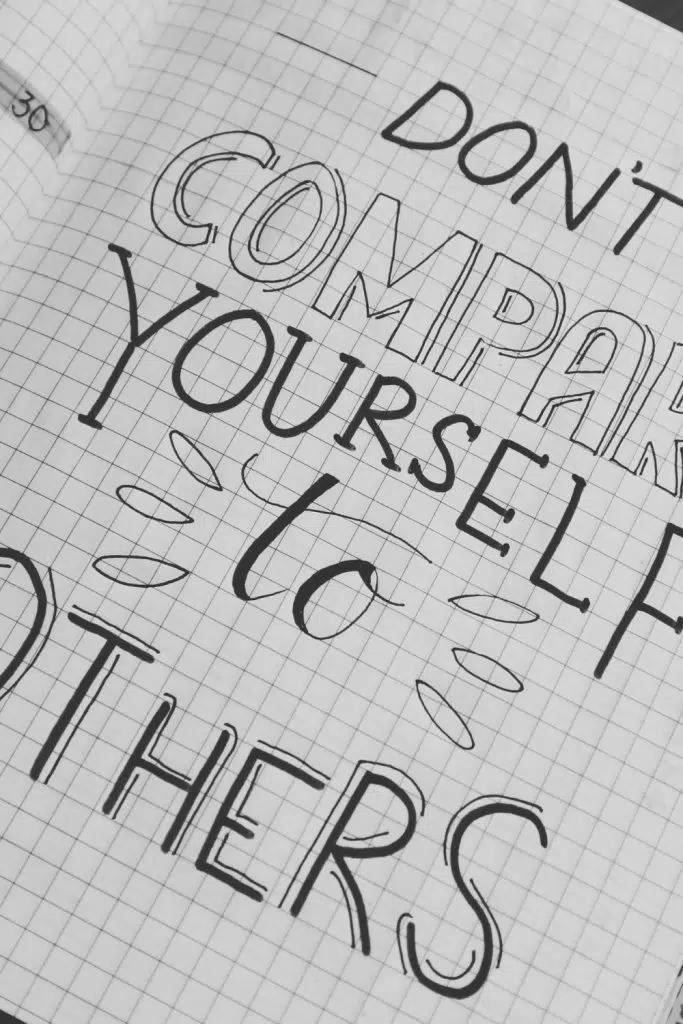 30
DON'T
COMPAR
YOURSELF
to
OTHERS